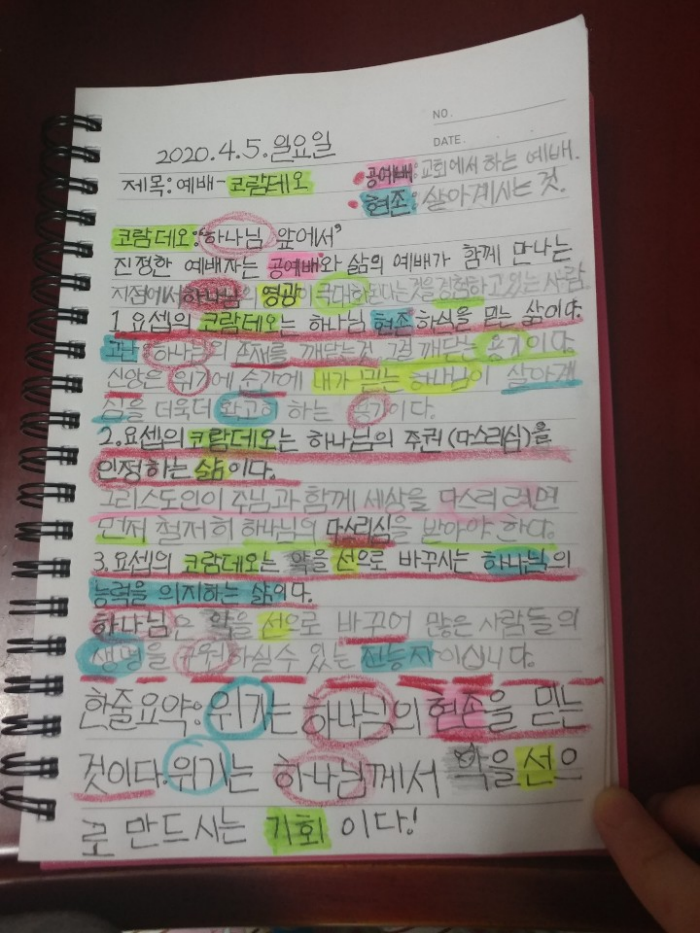 NO.
2020.4.5.일요일
DATE.
제목:예배-코람데오
•공예배:교회에서 하는 예배.
•현존:살아계시는 것.
코람데오:"하나님 앞에서"
진정한 예배자는 공예배와 삶의 예배가 함께 만나는
지점에서 하나님의 영광이 극대화 되는것을 경험하고 있는 사람
1.요셉의 코람데오는 하나님 현존하심을 믿는 삶이다.
고난 하나님의 존재를 깨닫는것 그걸 깨닫는 용기이다.
신앙은 위기에 순간에 내가 믿는 하나님이 살아계
심을 더욱더 확고히 하는 이다.
2.요셉의 코람데오는 하나님의 주권(다스리심)을
인정하는 삶이다.
그리스도인이 주님과 함께 세상을 다스리려면
먼저 철저히 하나님의 다스리심을 받아야 한다.
3.요셉의 코람데오는 악을 선으로 바꾸시는 하나님의
능력을 의지하는 삶이다.
하나님은 악을 선으로 바꾸어 많은 사람들의
생명을 구원하실수 있는 전능자이십니다.
한줄요약:위기는 하나님의 현존을 믿는
것이다.위기는 하나님께서 악을 선으
로 만드시는 기회이다!